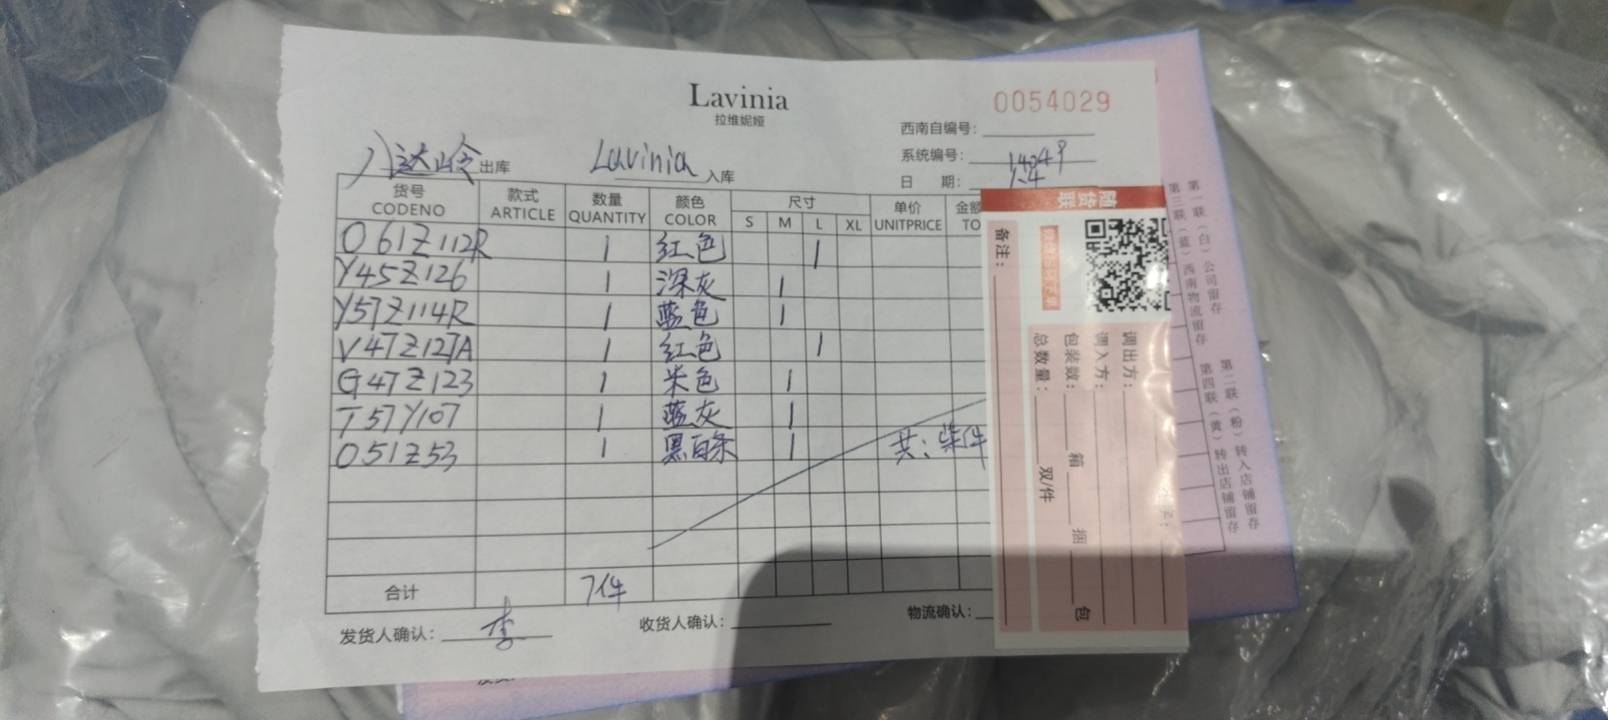 Lavinia
拉维妮娅
0054029
西南自编号：
系统编号：
日 期：
八达岭出库 Lavinia 入库
货号 款式 数量 颜色 尺寸 单价 金额
CODENO ARTICLE QUANTITY COLOR S M L XL UNITPRICE TO
O61Z112R 1 红色 1
Y45Z126 1 深灰 1
Y57Z114R 1 蓝色 1
V47Z127A 1 红色 1
G47Z123 1 米色 1
T57Y107 1 蓝灰 1
O51Z53 1 黑白条 1
共：柒件
合计 7件
发货人确认：李 收货人确认： 物流确认：
随货联
备注：
调出方：
调入方：
包装数： 箱 捆 包
总数量： 双/件
第一联（白）公司留存
第二联（粉）转入店铺留存
第三联（蓝）西南物流留存
第四联（黄）转出店铺留存